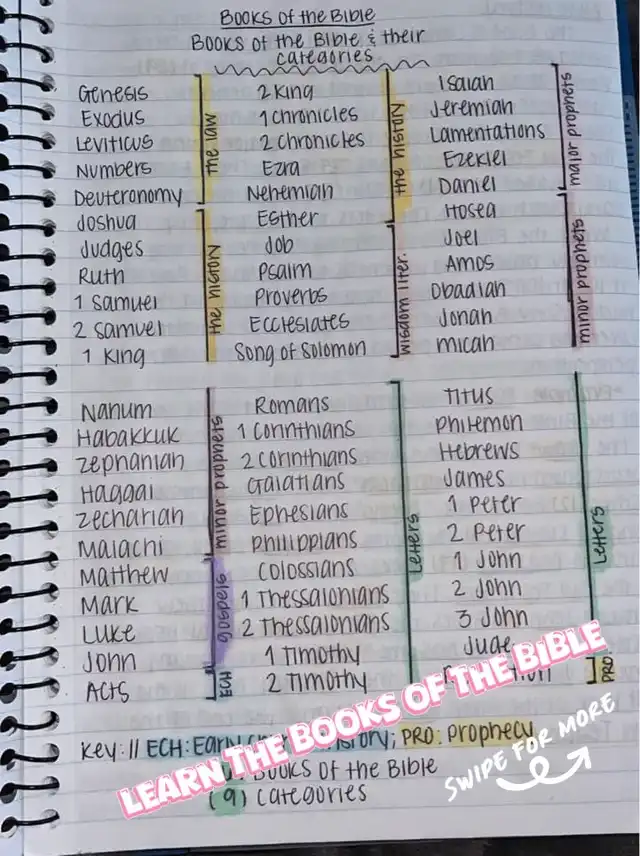 Books of the Bible
Books of the Bible & their
categories
Genesis
Exodus
Leviticus
Numbers
Deuteronomy
the law
Joshua
Judges
Ruth
1 Samuel
2 Samuel
1 King
the history
2 King
1 Chronicles
2 Chronicles
Ezra
Nehemiah
Esther
the history
Job
Psalm
Proverbs
Ecclesiates
Song of Solomon
wisdom liter.
Isaiah
Jeremiah
Lamentations
Ezekiel
Daniel
major prophets
Hosea
Joel
Amos
Obadiah
Jonah
micah
minor prophets
Nahum
Habakkuk
zephaniah
Haggai
zechariah
Malachi
minor prophets
Matthew
Mark
Luke
John
gospels
Acts
ECH
Romans
1 Corinthians
2 Corinthians
Galatians
Ephesians
Philippians
Colossians
1 Thessalonians
2 Thessalonians
1 Timothy
2 Timothy
Letters
Titus
Philemon
Hebrews
James
1 Peter
2 Peter
1 John
2 John
3 John
Jude
Letters
PRO
LEARN THE BOOKS OF THE BIBLE
Key: // ECH: Early history; PRO: prophecy
Books of the Bible
(9) categories
SWIPE FOR MORE